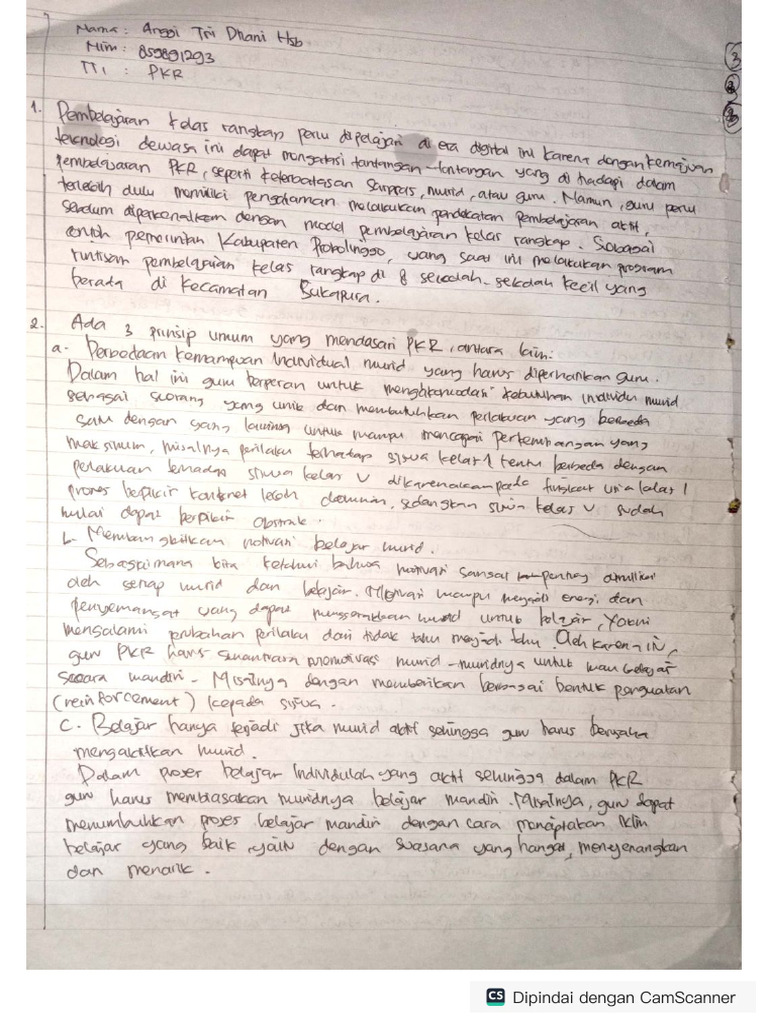 Nama : Anggi Tri Dhani Hsb
Nim : 859891293
TT1 : PKR
3
1. Pembelajaran kelas rangkap perlu dipelajari di era digital ini karena dengan kemajuan
teknologi dewasa ini dapat mengatasi tantangan-tantangan yang di hadapi dalam
pembelajaran PKR, seperti keterbatasan Sarpras, murid, atau guru. Namun, guru perlu
terlebih dulu memiliki pengalaman melakukan pendekatan pembelajaran aktif,
sebelum diperkenalkan dengan model pembelajaran kelas rangkap. Sebagai
contoh pemerintah Kabupaten Probolinggo, yang saat ini melakukan program
rintisan pembelajaran kelas rangkap di 8 sekolah-sekolah kecil yang
berada di Kecamatan Sukapura.
2. Ada 3 prinsip umum yang mendasari PKR, antara lain:
a. Perbedaan kemampuan Individual murid yang harus diperhatikan guru.
Dalam hal ini guru berperan untuk mengakomodasi kebutuhan individu murid
sebagai seorang yang unik dan membutuhkan perlakuan yang berbeda
satu dengan yang lainnya untuk mampu mencapai pertembangan yang
maksimum, misalnya perilaku terhadap siswa kelas 1 tentu berbeda dengan
perlakuan terhadap siswa kelas V dikarenakan pada tingkat usia kelas 1
proses berpikir konkret lebih dominan, sedangkan siswa kelas V sudah
mulai dapat berpikir abstrak.
b. Membangkitkan motivasi belajar murid.
Sebagaimana kita ketahui bahwa motivasi sangat penting dimiliki
oleh setiap murid dan belajar. Motivasi mampu menjadi energi dan
penyemangat yang dapat menggerakkan murid untuk belajar, yakni
mengalami perubahan perilaku dari tidak tahu menjadi tahu. Oleh karena ini,
guru PKR harus senantiasa memotivasi murid-muridnya untuk mau belajar
secara mandiri. Misalnya dengan memberikan berbagai bentuk penguatan
(reinforcement) kepada siswa.
C. Belajar hanya terjadi jika murid aktif sehingga guru harus berusaha
mengaktifkan murid.
Dalam proses belajar Individulah yang aktif sehingga dalam PKR
guru harus membiasakan muridnya belajar mandiri. Misalnya, guru dapat
menumbuhkan proses belajar mandiri dengan cara menciptakan iklim
belajar yang baik, yaitu dengan suasana yang hangat, menyenangkan
dan menarik.
CS Dipindai dengan CamScanner